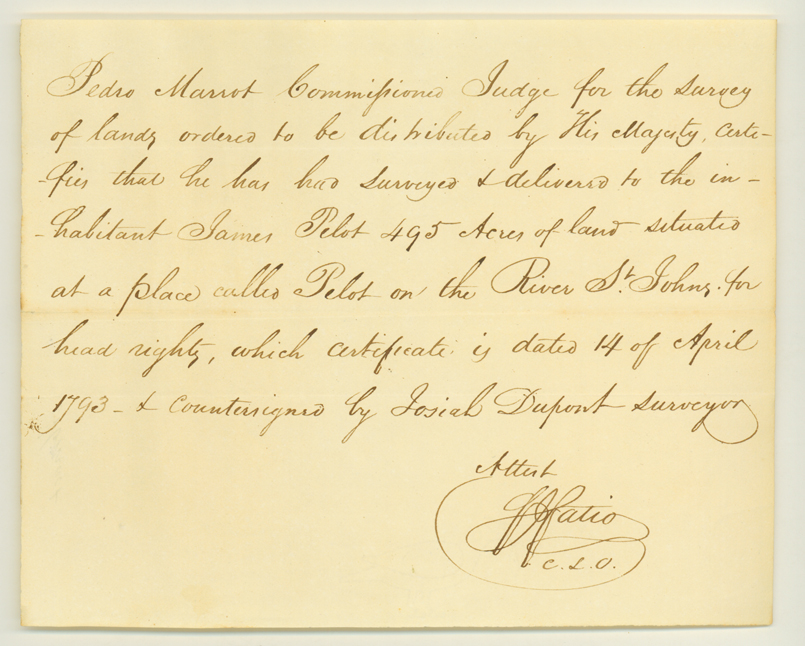 Pedro Marrot Commissioned Judge for the survey
of lands ordered to be distributed by His Majesty, certi-
-fies that he has had surveyed & delivered to the in-
-habitant James Pelot 495 Acres of land situated
at a place called Pelot on the River St. Johns. for
head rights, which certificate is dated 14 of April
1793 - & countersigned by Josiah Dupont surveyor
Attest
F J Fatio
C. L. O.